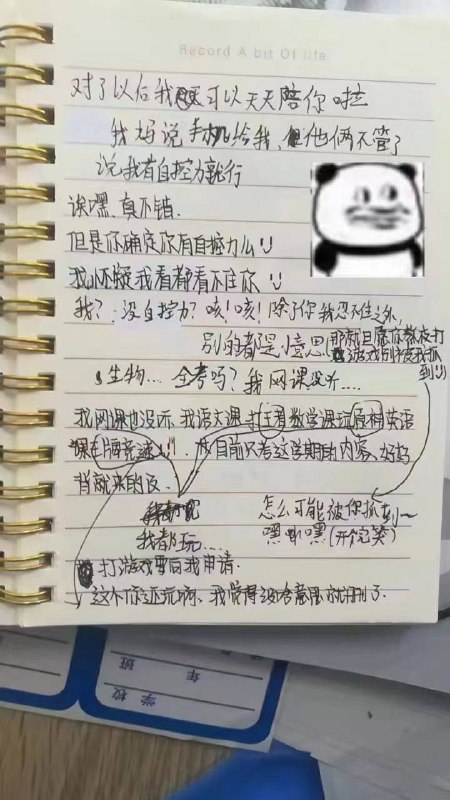 Record A bit Of life
对了以后我可以天天陪你啦
我妈说手机给我,他俩不管了
说我有自控力就行
诶嘿,真不错.
但是你确定你有自控力么
我怀疑我看都看不住你
我?没自控力?咳!咳!除了你我忍不住之外,
别的都是小意思
那就但愿你打
游戏别被我抓
到!
生物… 全考吗?我网课没听…
我网课也没听 我语文课 数学课玩原神英语
课 目前只考这学期的内容,好好
背就来的及.
我都玩…
怎么可能被你抓到~
嘿嘿(开个玩笑)
打游戏要向我申请.
这个你还玩啊,我觉得没啥意思就删了.
年
班
学校